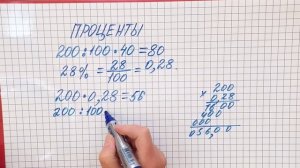 ПРОЦЕНТЫ
200:100·40=80
28%=28/100=0,28.
200·0,28=56
200:100·
× 200
0,28
1600
400
000
056,00